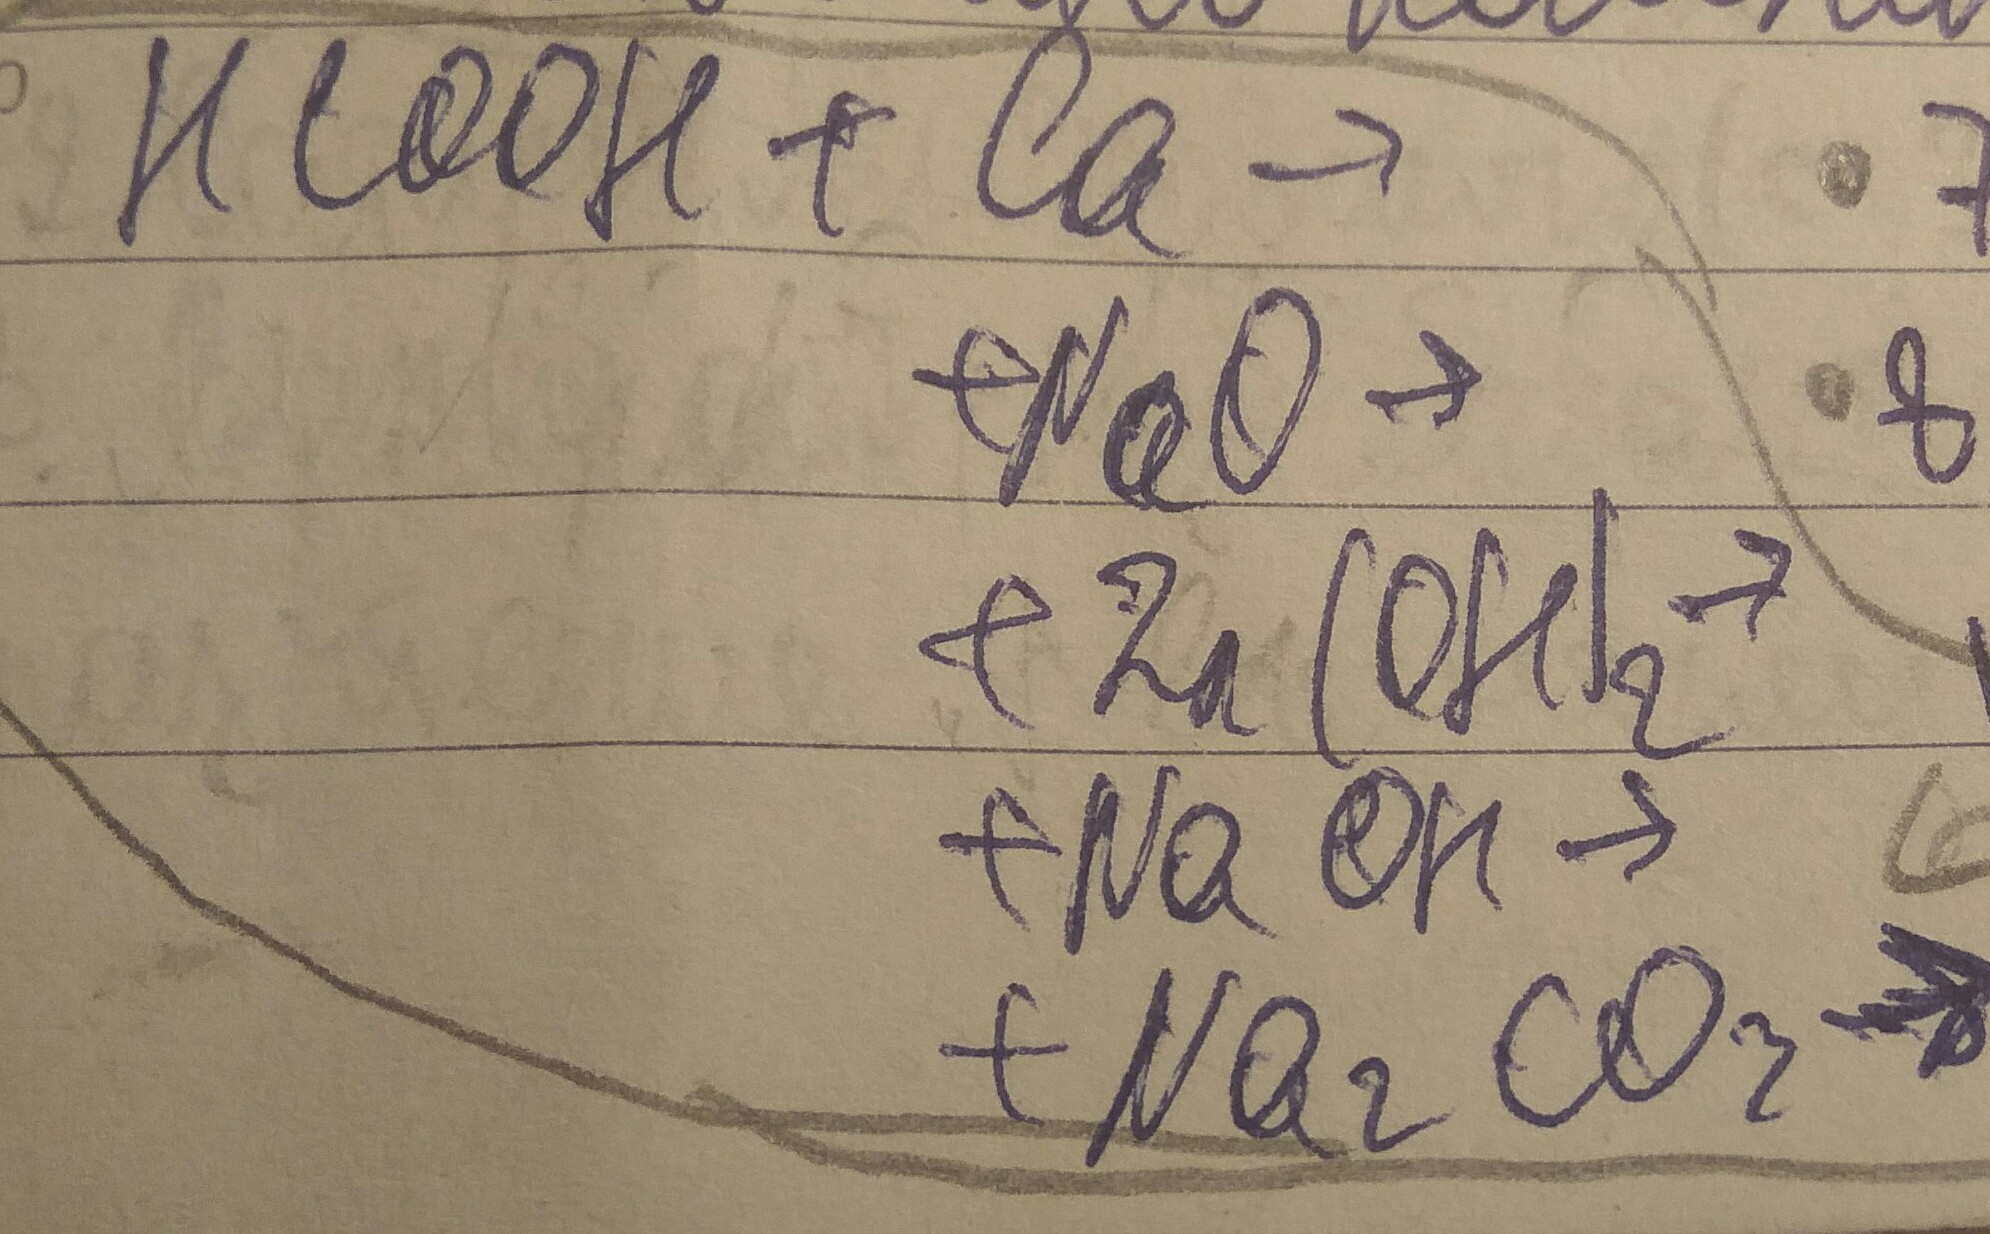 HCOOH + Ca → • 7
+ NaO → • 8
+ Zn(OH)₂ →
+ NaOH →
+ Na₂CO₃ →